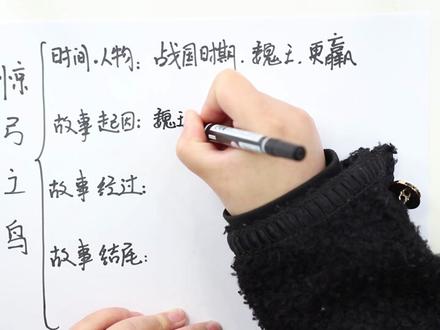 惊弓之鸟
时间·人物：战国时期．魏王．更羸
故事起因：魏王
故事经过：
故事结尾：